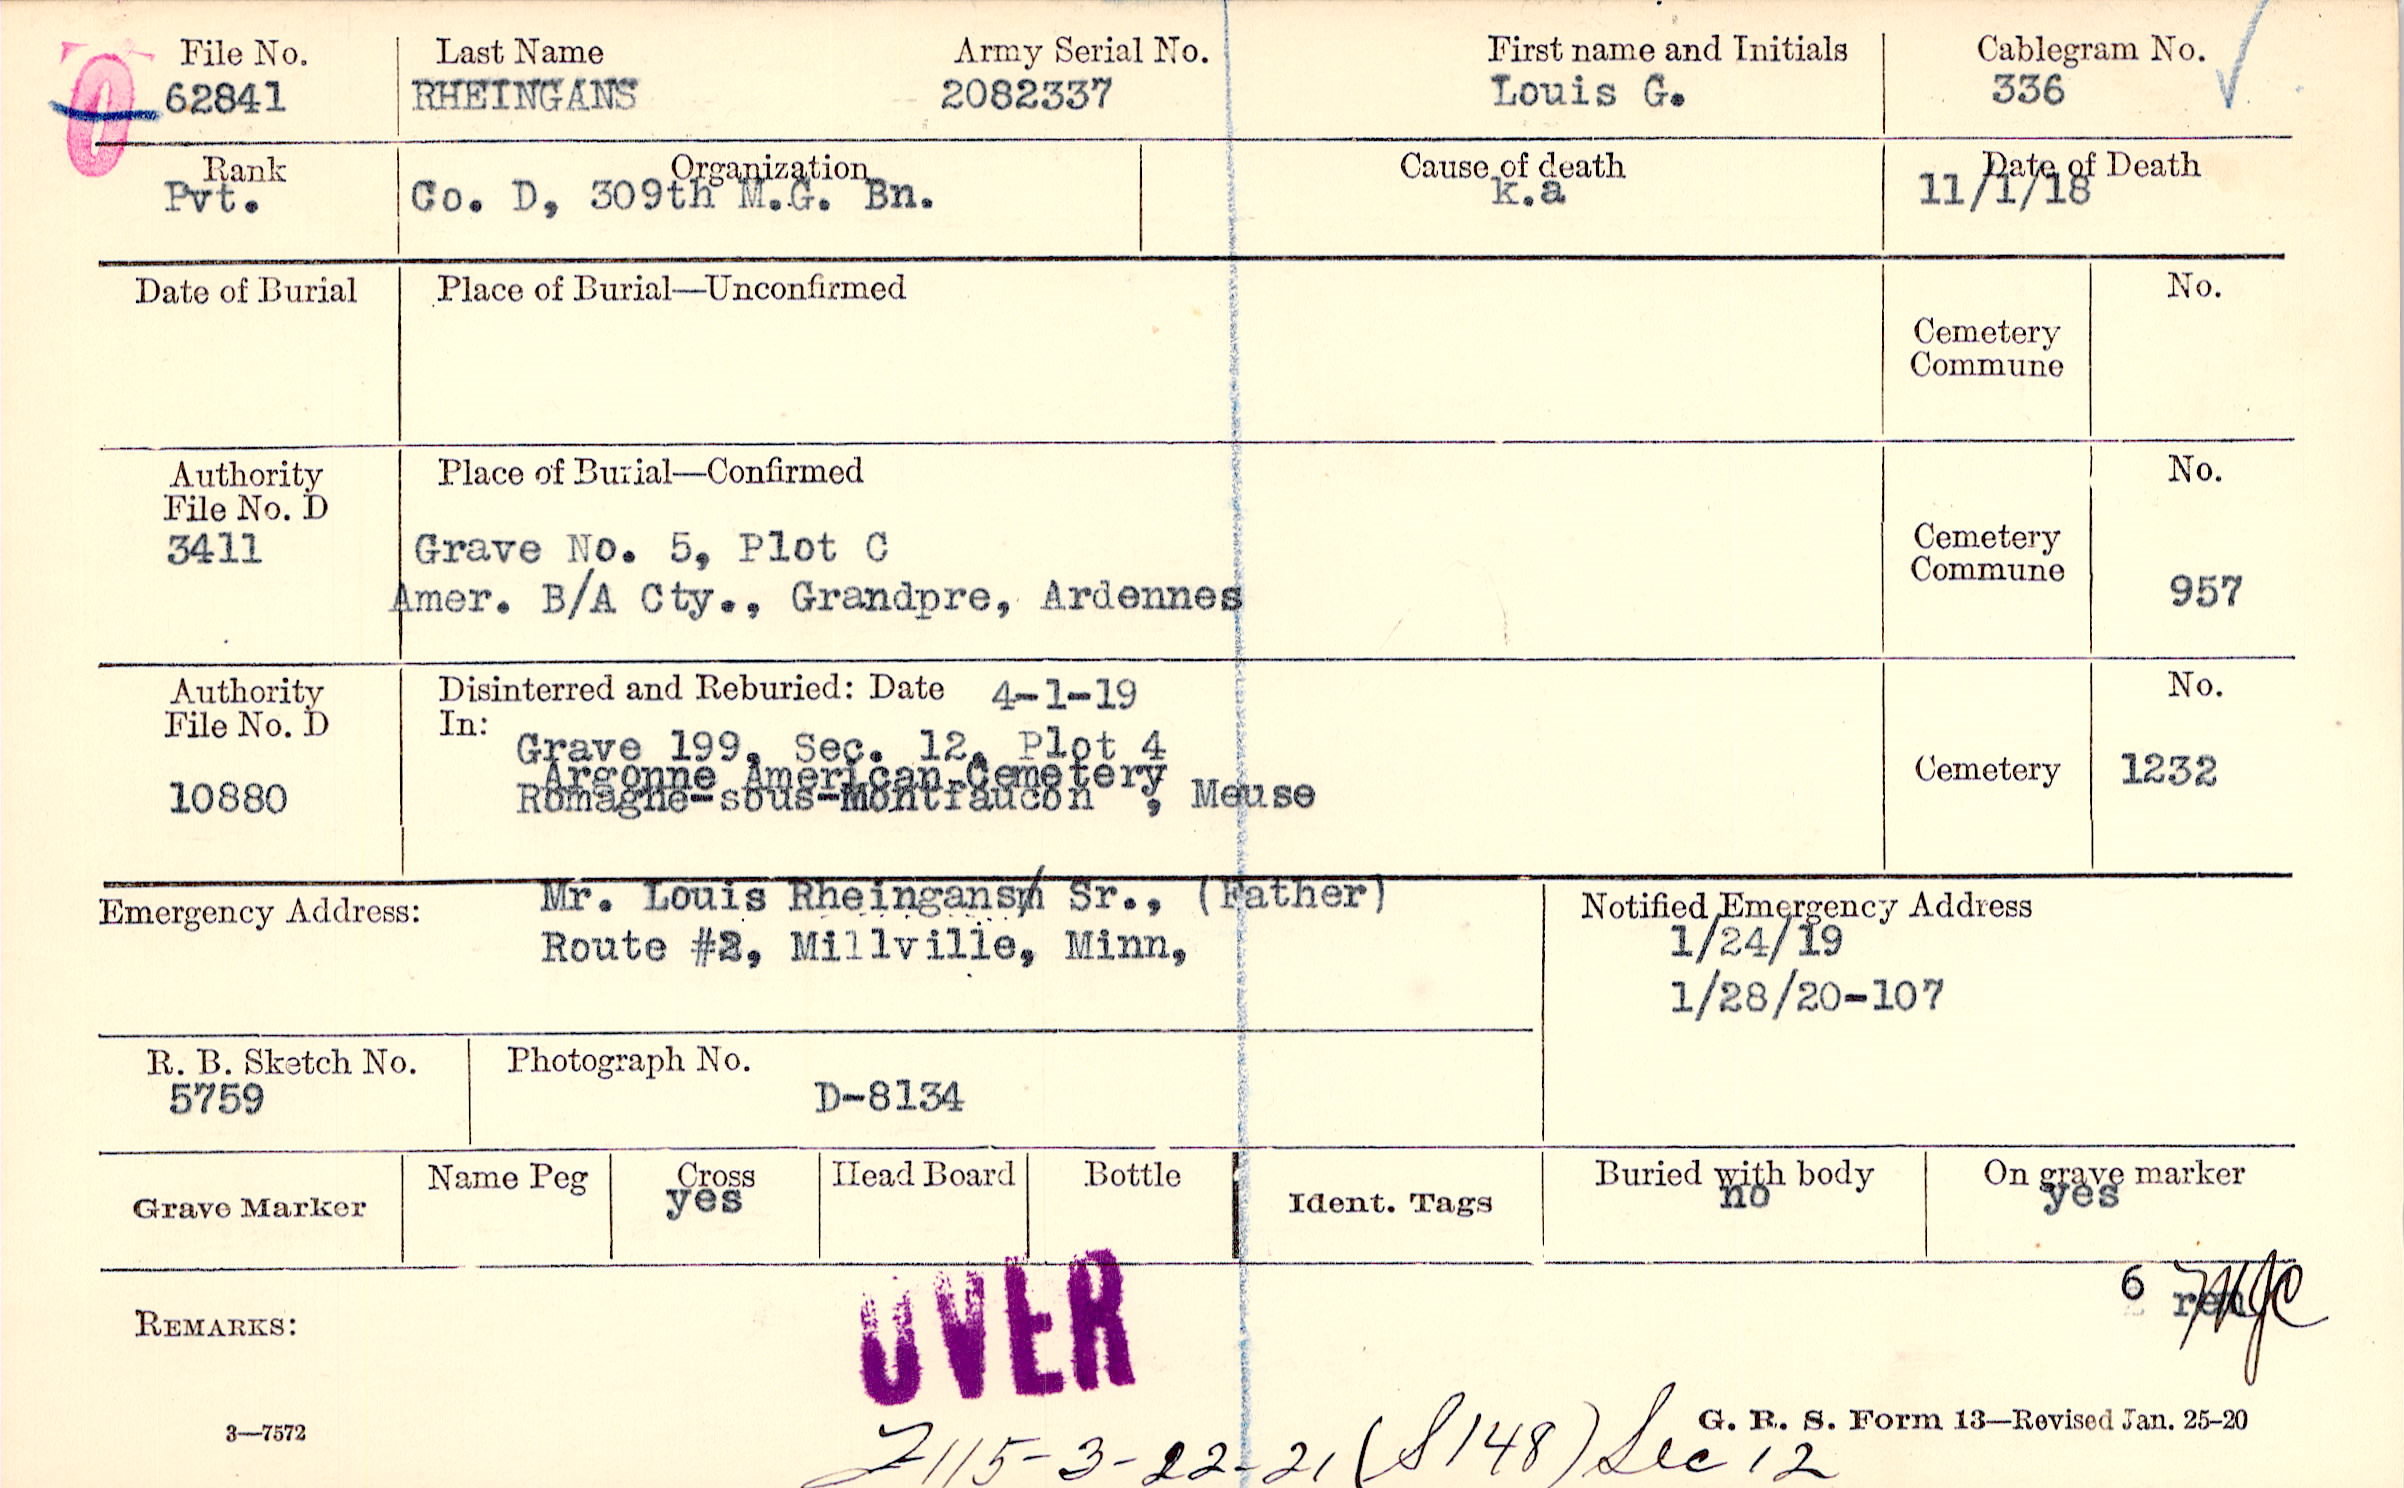 File No. Last Name Army Serial No. First name and Initials Cablegram No.
62841 RHEINGANS 2082337 Louis G. 336
Rank Organization Cause of death Date of Death
Pvt. Co. D, 309th M.G. Bn. k.a 11/1/18
Date of Burial Place of Burial—Unconfirmed No.
Cemetery
Commune
Authority Place of Burial—Confirmed No.
File No. D
3411 Grave No. 5, Plot C Cemetery
Commune
Amer. B/A Cty., Grandpre, Ardennes 957
Authority Disinterred and Reburied: Date 4-1-19 No.
File No. D In:
Grave 199, Sec. 12, Plot 4
Argonne American Cemetery Cemetery 1232
10880 Romagne-sous-Montfaucon , Meuse
Emergency Address: Mr. Louis Rheingans Sr., (Father) Notified Emergency Address
Route #2, Millville, Minn, 1/24/19
1/28/20-107
R. B. Sketch No. Photograph No.
5759 D-8134
Grave Marker Name Peg Cross Head Board Bottle Ident. Tags Buried with body On grave marker
yes no yes
6
REMARKS: OVER
3—7572 G. R. S. Form 13—Revised Jan. 25-20
115-3-22-21 (S148) Sec 12